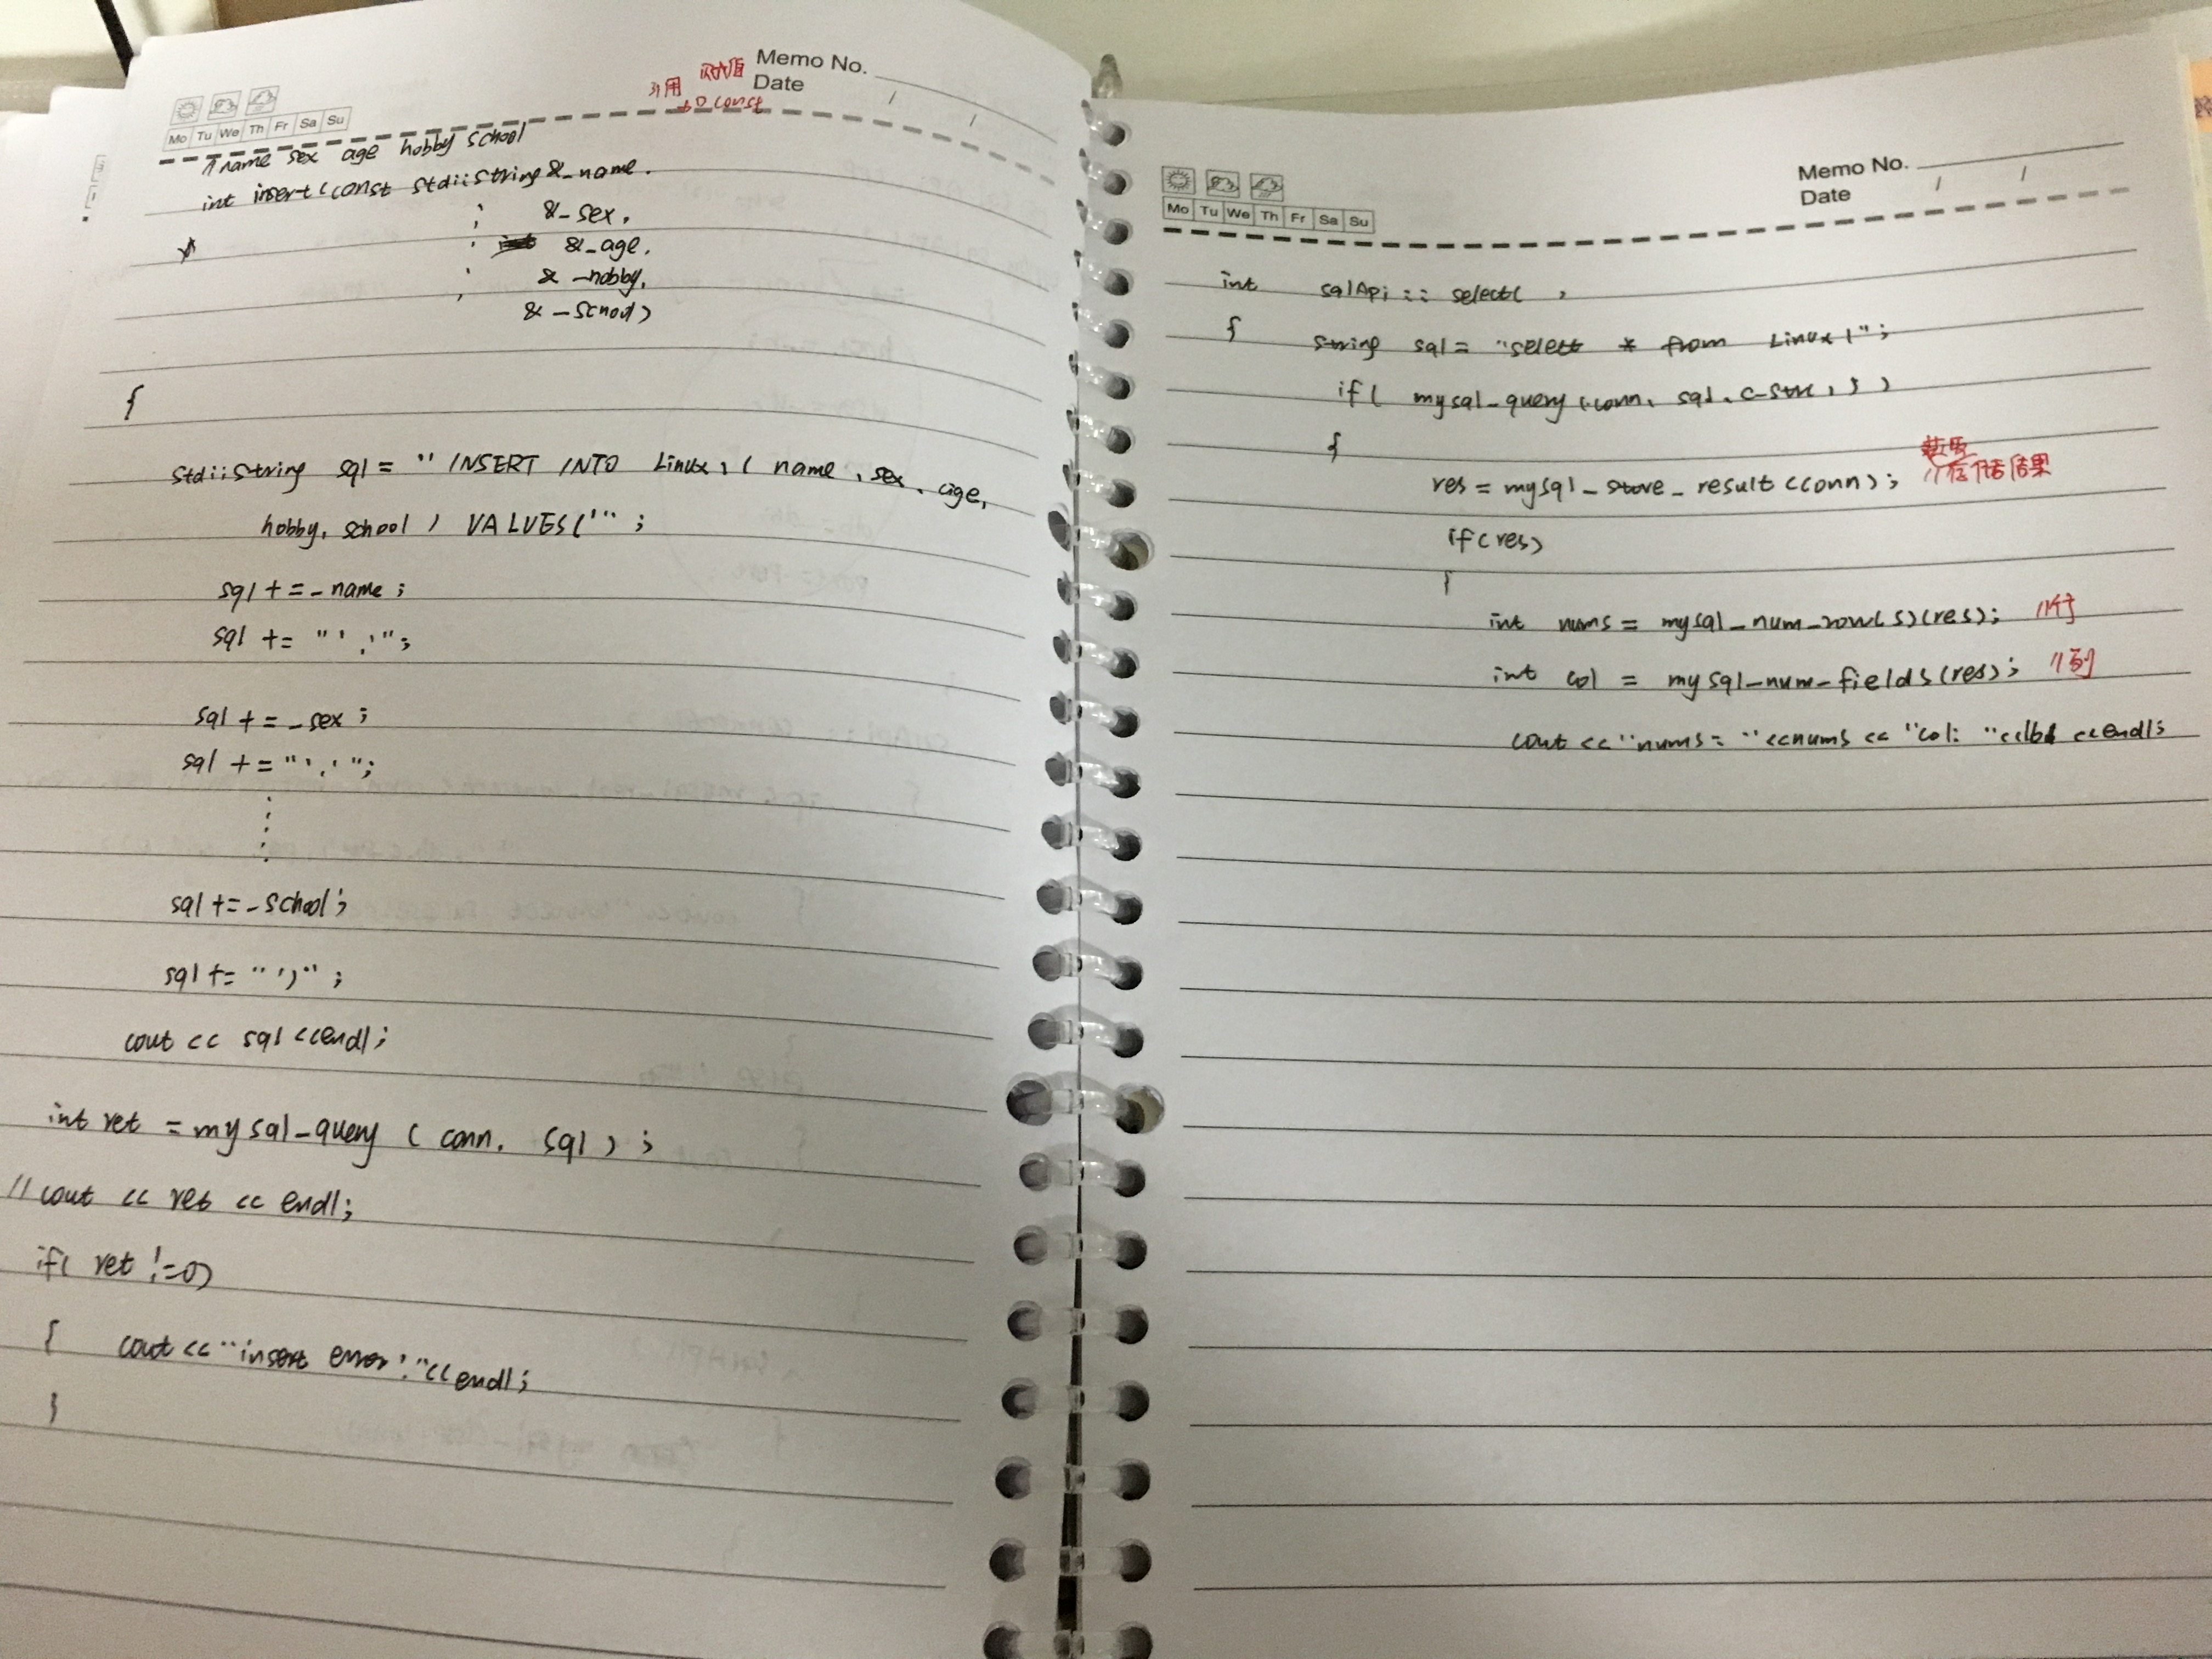 Memo No.
Date / /
引用
加 const
Mo Tu We Th Fr Sa Su
//name sex age hobby school
int insert(const std::string &_name,
&_sex,
&_age,
&_hobby,
&_school)
{
std::string sql = "INSERT INTO Linux1( name, sex, age,
hobby, school ) VALUES('";
sql += _name;
sql += "','";
sql += _sex;
sql += "','";
sql += _school;
sql += "')";
cout << sql <<endl;
int ret = mysql_query ( conn, sql ) ;
//cout << ret << endl;
if( ret !=0)
{ cout << "insert error!"<<endl;
}
Memo No.
Date / /
Mo Tu We Th Fr Sa Su
int sqlApi :: select( )
{ string sql = "select * from Linux1";
if( mysql_query (conn, sql.c_str() )
{
res = mysql_store_result (conn); //存储结果
if(res)
{
int nums = mysql_num_row(s)(res); //行
int col = mysql_num_fields(res); //列
cout << "nums= "<<nums << "col: "<< <<endl;